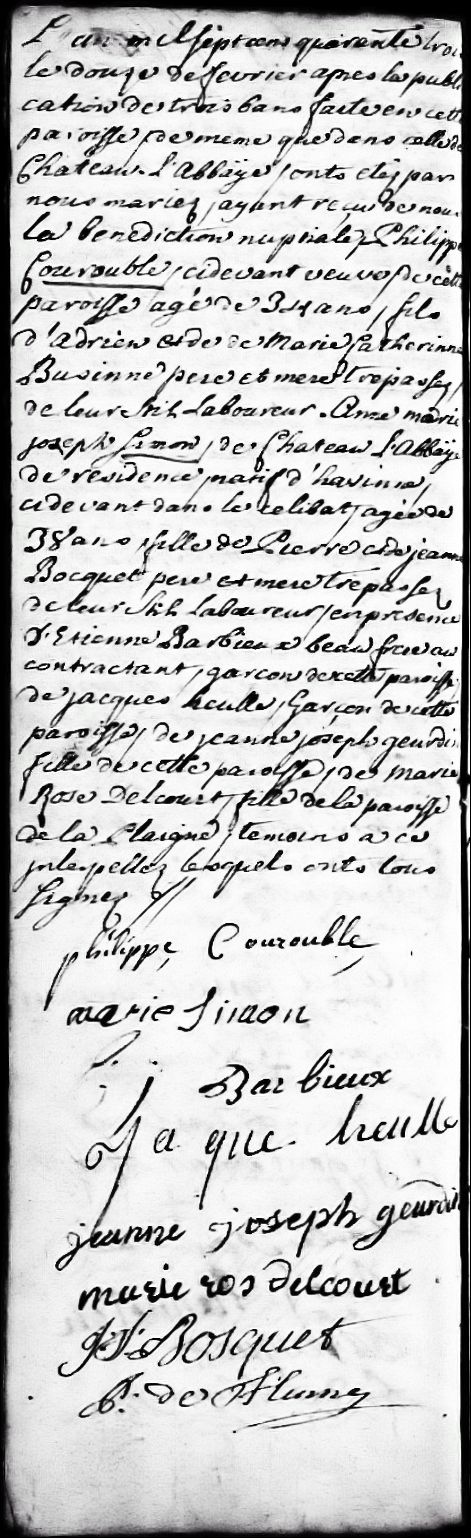 L'an mil sept cens quarente trois
le douze de fevrier apres la publi
cation de trois bans faite en cette
paroisse, de meme que dans celle de
Chateau-L'Abbaye, onts etéz par
nous mariez, ayant reçu de nous
la benediction nuptiale, Philippe
Courouble, cidevant veuve, de cette
paroisse agé de 34 ans, fils
d'Adrien et de de Marie Catherinne
Businne pere et mere trepassez,
de leur stil Laboureur. Anne marie
joseph Simon, de Chateau L'Abbaye
de residence, natif d'havinne,
cidevant dans le celibat, agée de
38 ans, fille de Pierre et de jeanne
Bocquet pere et mere trepassez
de leur stil Laboureur, en presence
d'Etienne Barbieux beau frere au
contractant, garcon de cette paroisse,
de jacques heulle, Garçon de cette
paroisse, de jeanne joseph geurdin
fille de cette paroisse, de Marie
Rose Delcourt, fille de la paroisse
de la Plaigne, temoins a ce
jnterpellez lesquels onts tous
signez //
philippe Courouble
marie Simon
j Barbieux
Jaque heulle
jeanne joseph geurdin
marie ros delcourt
Bosquet
P. de Flumez